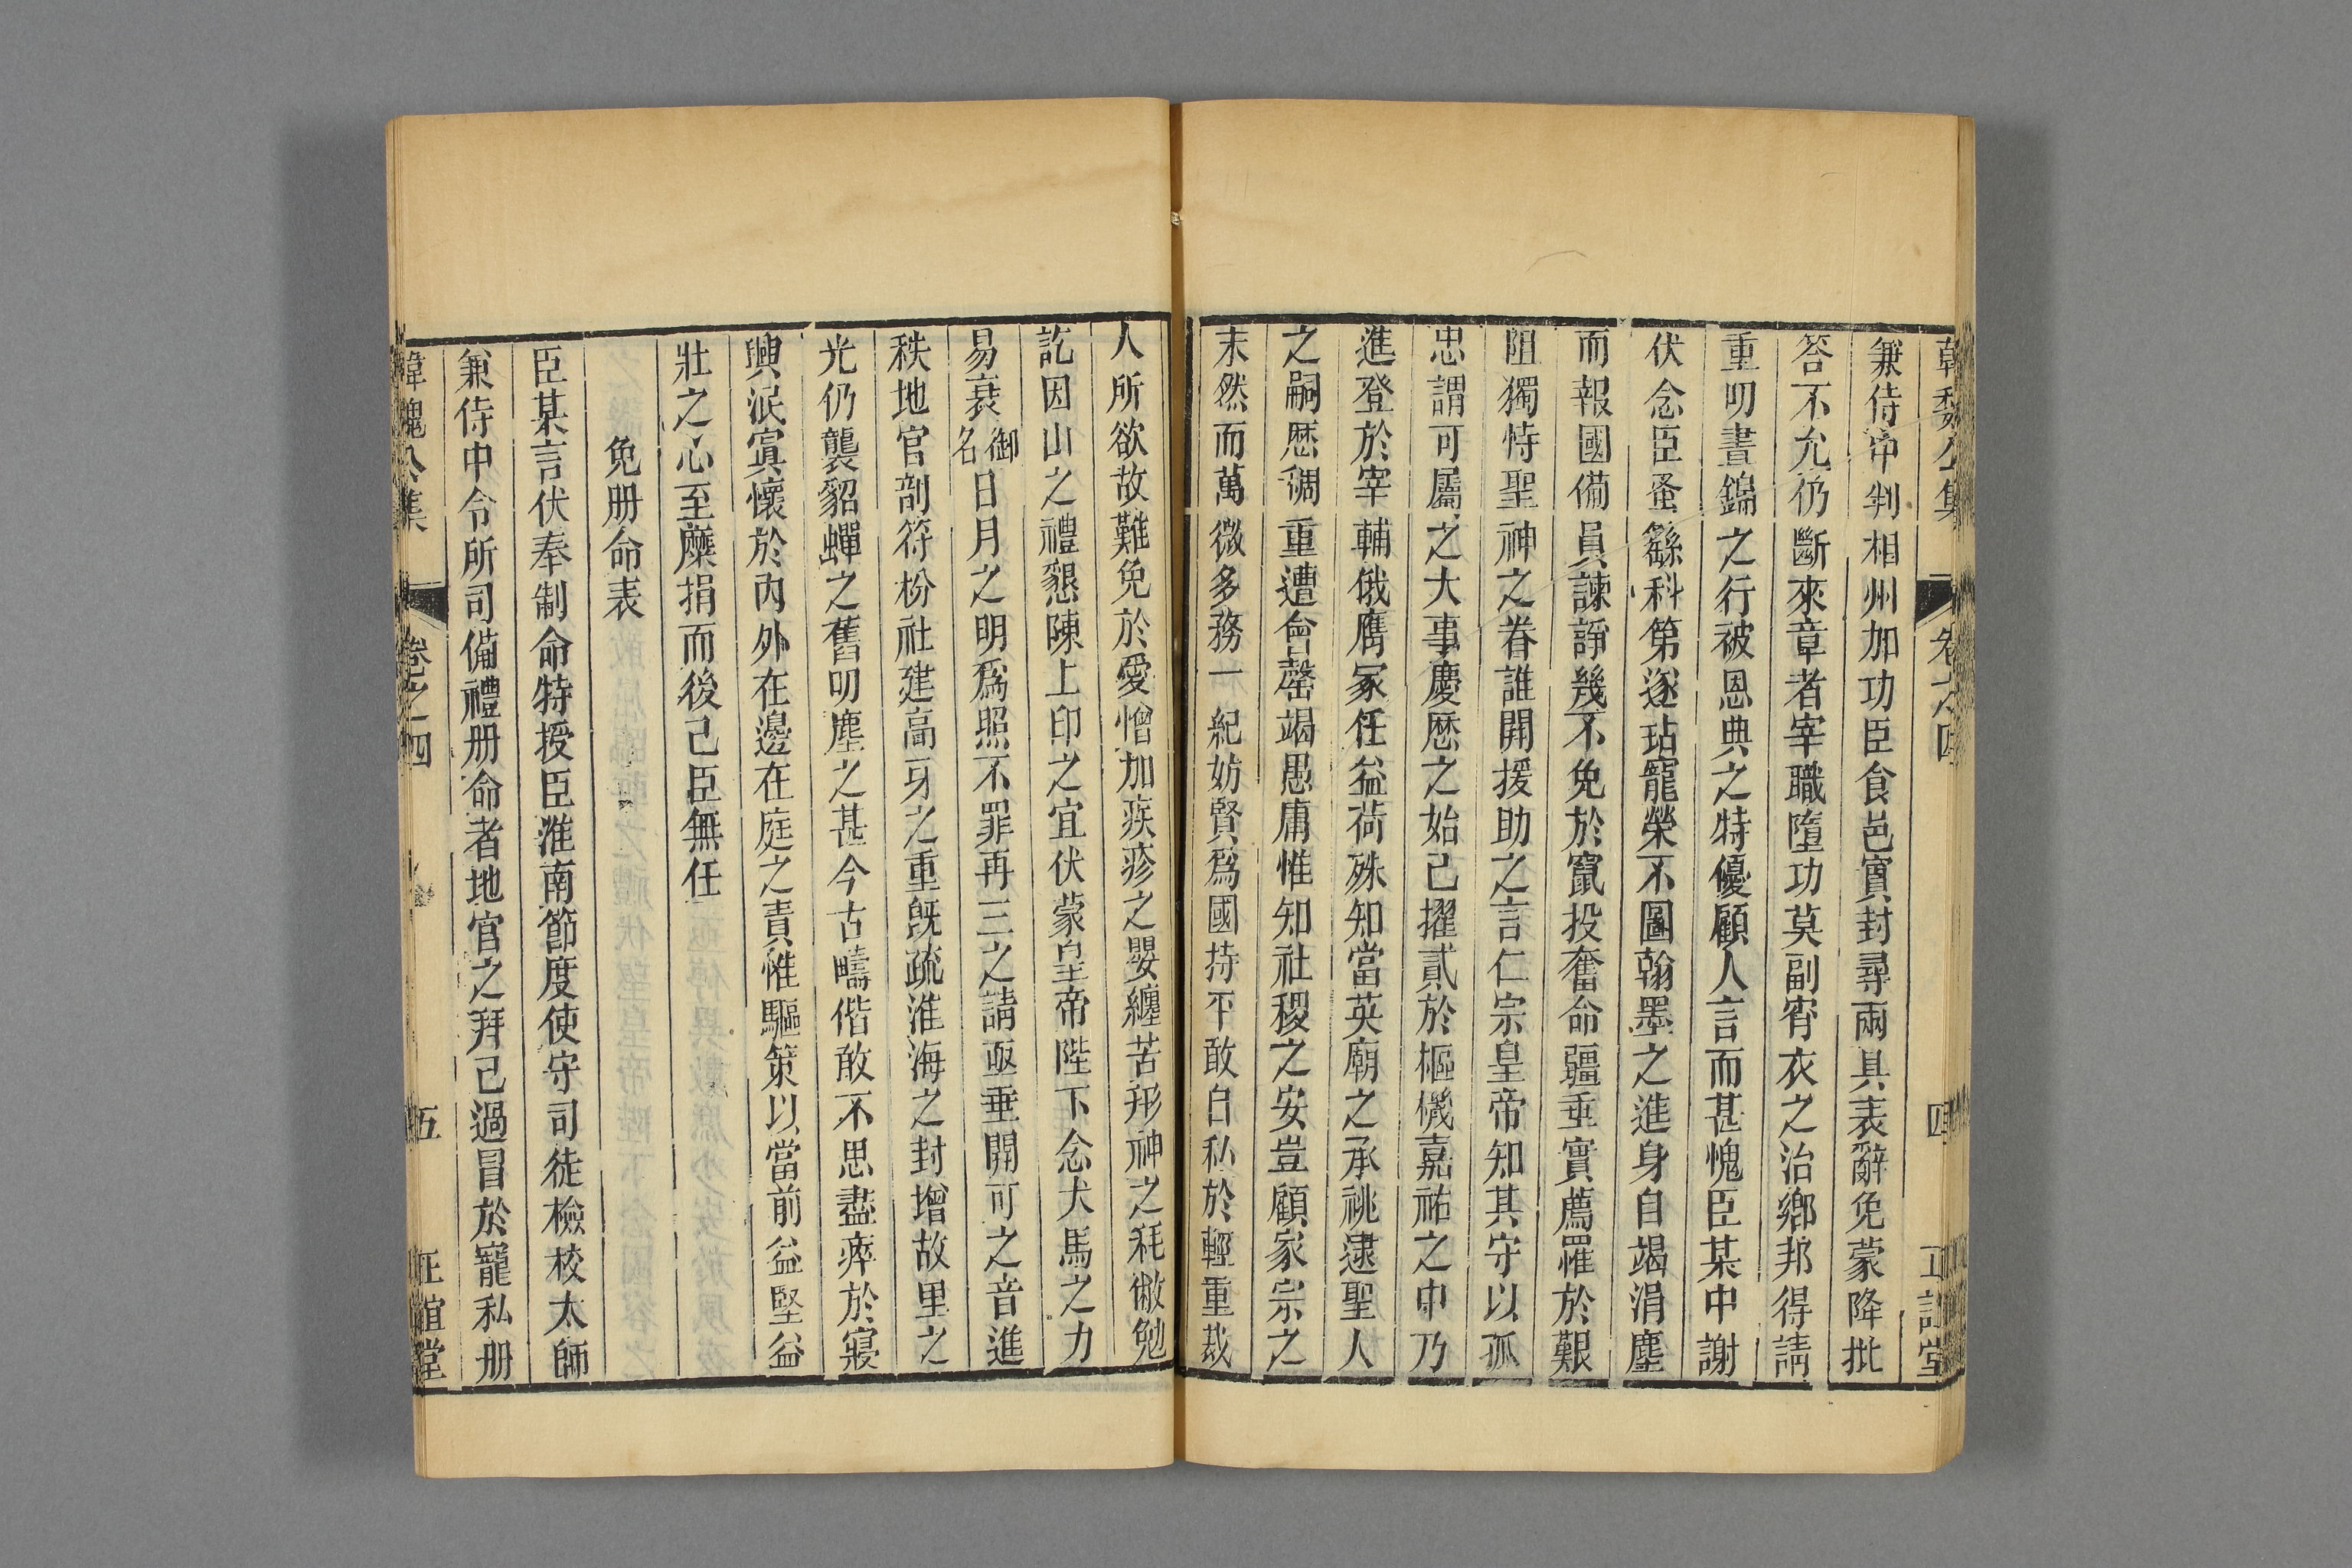 韓魏公集 卷之四 四 正誼堂
兼侍中判相州加功臣食邑實封尋兩具表辭免蒙降批
答不允仍斷來章者宰職墮功莫副宵衣之治鄉邦得請
重叨晝錦之行被恩典之特優顧人言而甚愧臣某中謝
伏念臣蚤繇科第遂玷寵榮不圖翰墨之進身自竭涓塵
而報國備員諫諍幾不免於竄投奮命疆垂實薦罹於艱
阻獨恃聖神之眷誰開援助之言仁宗皇帝知其守以孤
忠謂可屬之大事慶歷之始已擢貳於樞機嘉祐之中乃
進登於宰輔俄膺冢任益荷殊知當英廟之承祧逮聖人
之嗣歷稠重遭會罄竭愚庸惟知社稷之安豈顧家宗之
末然而萬微多務一紀妨賢爲國持平敢自私於輕重裁
人所欲故難免於愛憎加疾疹之嬰纏苦形神之耗僘勉
訖因山之禮懇陳上印之宜伏蒙皇帝陛下念犬馬之力
易衰御名日月之明爲照不罪再三之請亟垂開可之音進
秩地官剖符枌社建高牙之重旣疏淮海之封增故里之
光仍襲貂蟬之舊叨塵之甚今古疇偕敢不思盡瘁於寢
興泯寘懷於內外在邊在庭之責惟驅策以當前益堅益
壯之心至糜捐而後已臣無任
免册命表
臣某言伏奉制命特授臣淮南節度使守司徒檢校太師
兼侍中令所司備禮册命者地官之拜已過冒於寵私册
韓魏公集 卷之四 五 正誼堂